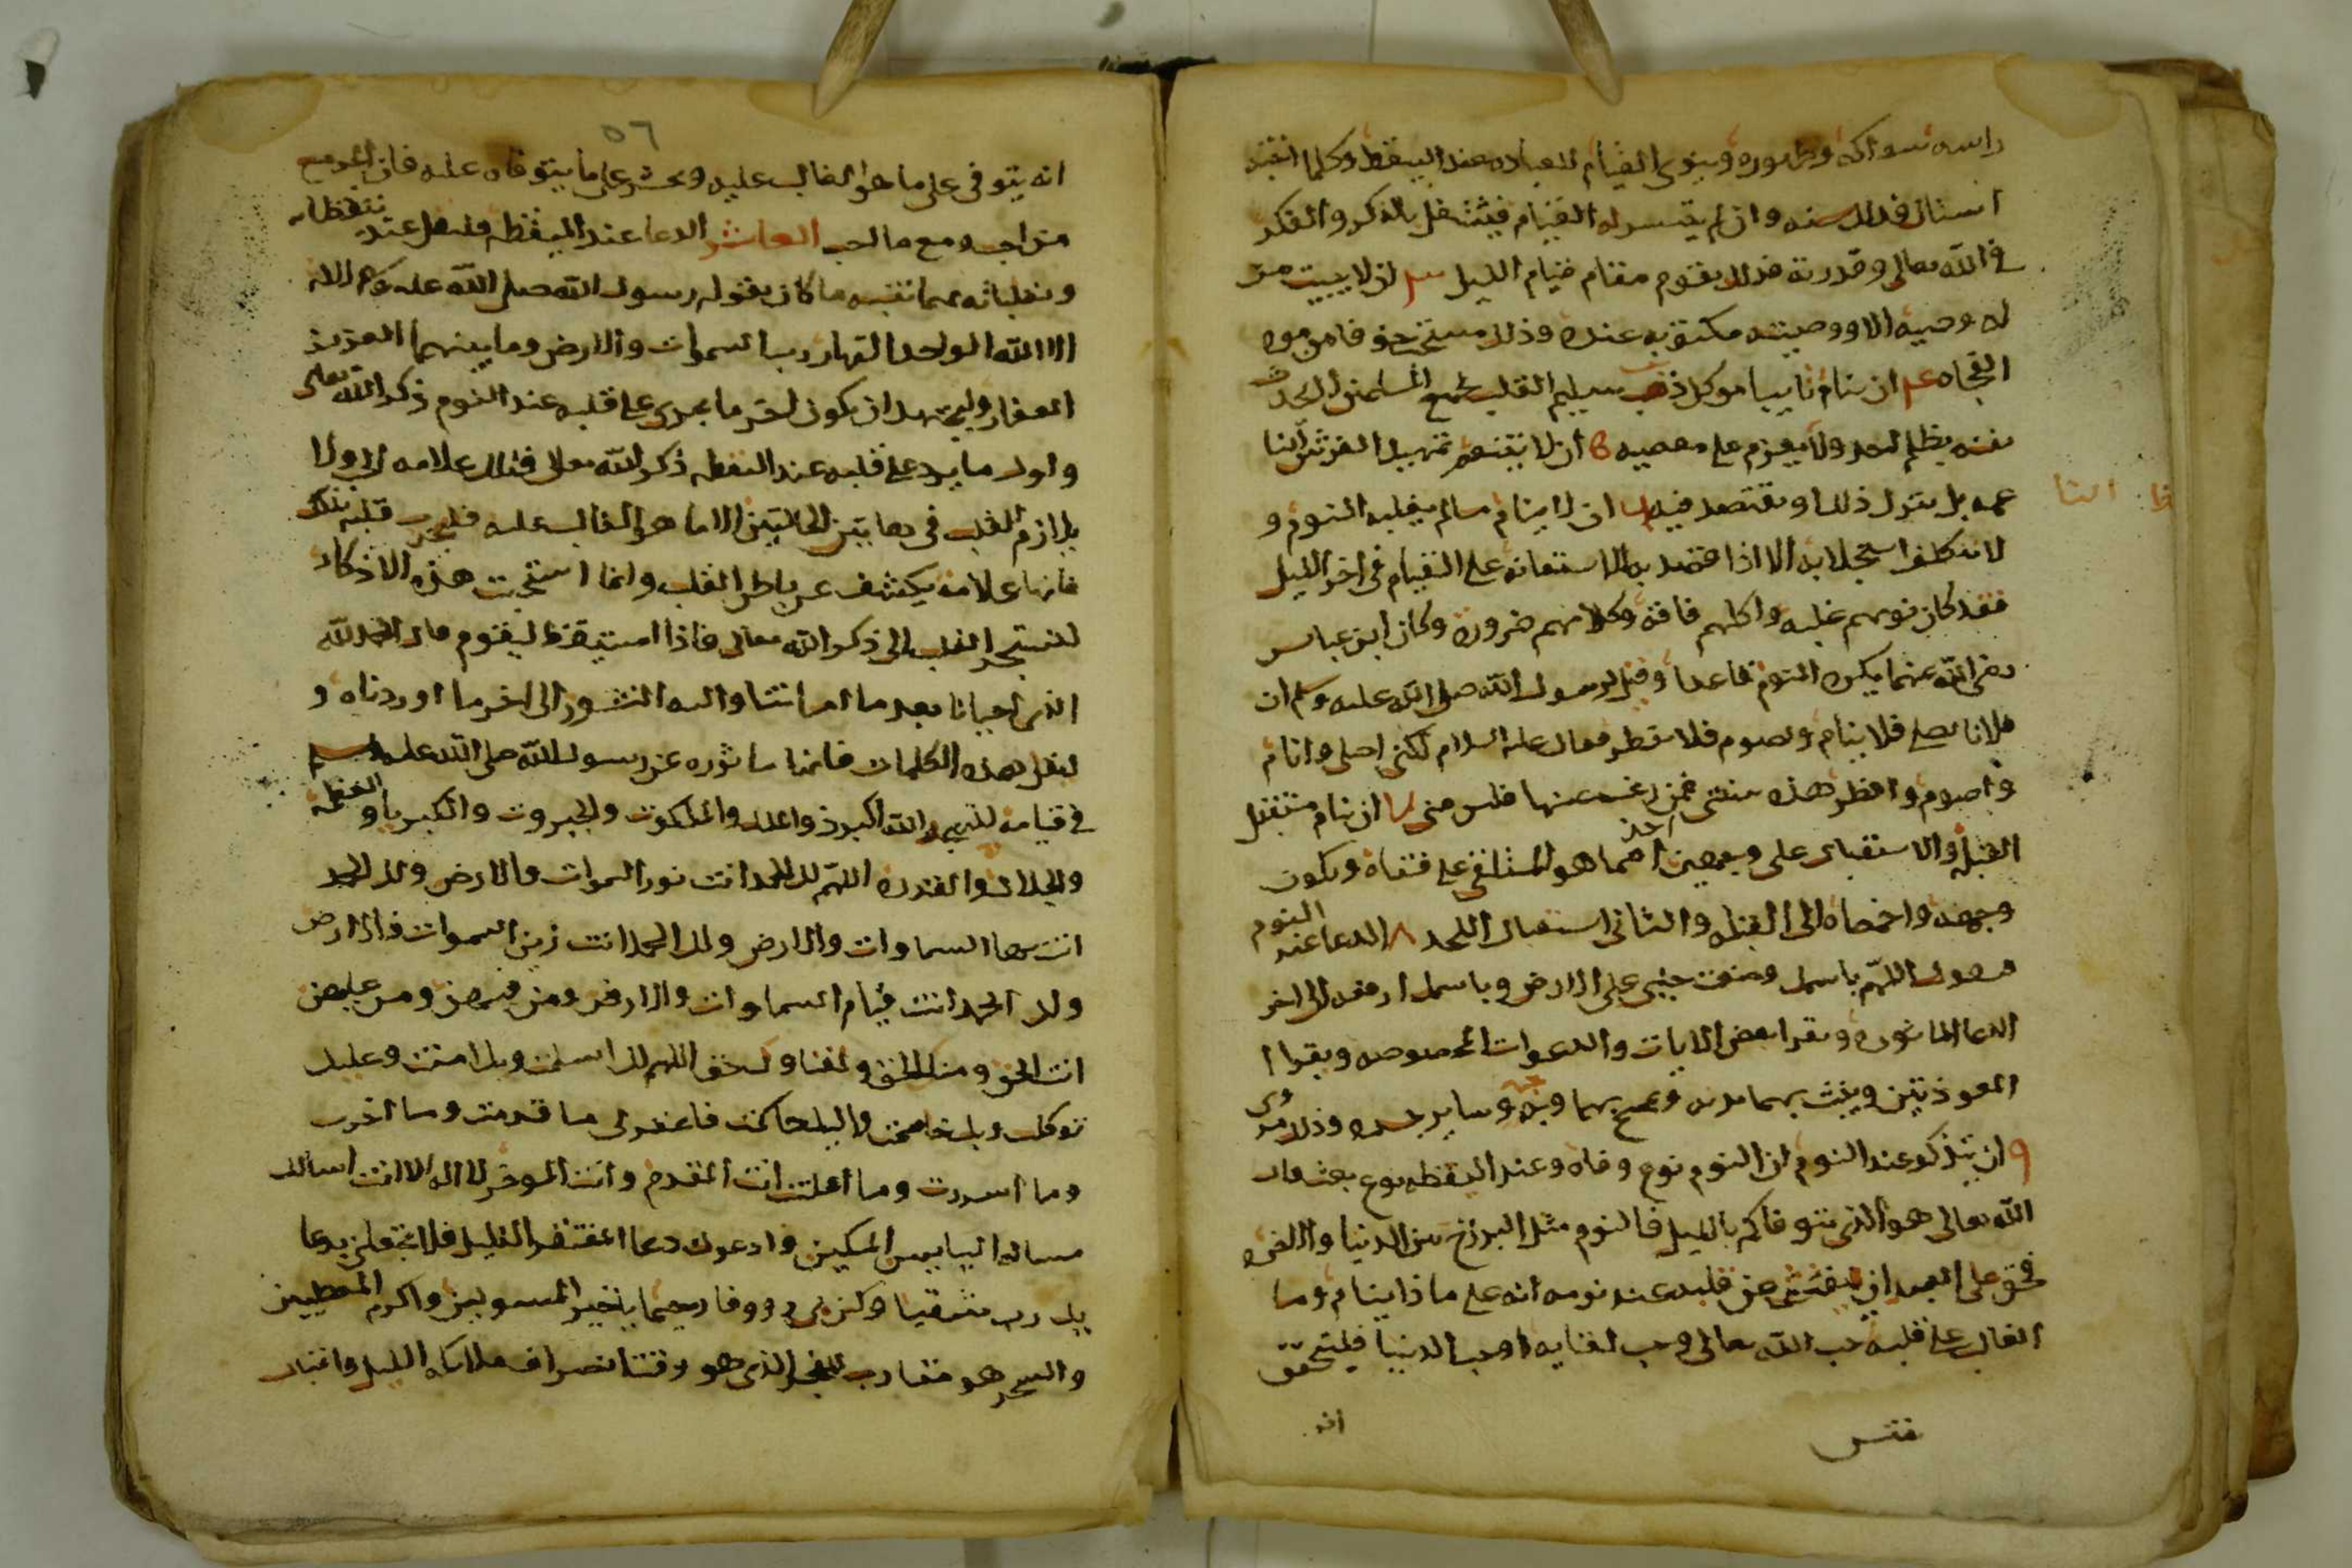 راسه سواكه وطهوره وينوي القيام للعباده عند اليقظه وكلما انتبه
استاك فذلك سنه وان لم يتيسر له القيام فيشتغل بالذكر والفكر
في الله تعالى وقدرته فذلك يقوم مقام قيام الليل ٣ ان لا يبيت من
له وصيه الا ووصيته مكتوبه عنده وذلك مستحق خوفا من موت
الفجاه ٤ ان ينام تايبا من كل ذنب سليم القلب لجميع المسلمين لا يحدث
نفسه بظلم احد ولا يعزم على معصيه ٥ ان لا يتنعم بتمهيد الفرش الناعمه
بل يترك ذلك او يقتصد فيه ٦ ان لا ينام ما لم يغلبه النوم و
لا يتكلف استجلابه الا اذا قصد به الاستعانه على القيام في اخر الليل
فقد كان نومهم غلبه واكلهم فاقه وكلامهم ضروره وكان ابن عباس
رضي الله عنهما يكره النوم قاعدا وقيل لرسول الله صلى الله عليه وسلم ان
فلانا يصلي فلا ينام ويصوم فلا يفطر فقال عليه السلام لكني اصلي وانام
واصوم وافطر هذه سنتي فمن رغب عنها فليس مني ٧ ان ينام مستقبل
القبله والاستقبال على وجهين احدهما هو المستلقي على قفاه ويكون
وجهه واخمصاه الى القبله والثاني استقبال اللحد ٨ الدعا عند النوم
فيقول اللهم باسمك وضعت جنبي على الارض وباسمك ارفعه الى اخر
الدعا الماثوره ويقرا بعض الايات والدعوات المخصوصه ويقرا ا
المعوذتين وينفث بهما يديه ويمسح بهما وجهه وساير جسده وذلك مروي
٩ ان يتذكر عند النوم ان النوم نوع وفاه وعند اليقظه نوع بعث قال
الله تعالى هو الذي يتوفاكم بالليل فالنوم مثل البرزخ بين الدنيا والاخره
فحق على العبد ان يفتش عن قلبه عند نومه انه على ماذا ينام وما
الغالب على قلبه حب الله تعالى وحب لقايه او حب الدنيا فليتحقق
انه
٥٦
انه يتوفى على ما هو الغالب عليه ويحشر على ما يتوفاه عليه فان المرء مع
من احب ومع ما احب العاشر الدعا عند اليقظه فليقل عند تيقظاته
وتقلباته مهما تنبه ما كان يقوله رسول الله صلى الله عليه وسلم لا اله
الا الله الواحد القهار رب السموات والارض وما بينهما العزيز
الغفار وليجتهد ان يكون اخر ما يجري على قلبه عند النوم ذكر الله تعالى
واول ما يرد على قلبه عند اليقظه ذكر الله تعالى فتلك علامه الحب ولا
يلازم القلب في هاتين الحالتين الا ما هو الغالب عليه فليجرب قلبه بذلك
فانها علامه يكشف عن باطن القلب وانما استحبت هذه الاذكار
لتستجر القلب الى ذكر الله تعالى فاذا استيقظ ليقوم قال الحمد لله
الذي احيانا بعد ما اماتنا واليه النشور الى اخر ما اوردناه و
ليقل هذه الكلمات فانها ماثوره عن رسول الله صلى الله عليه وسلم
في قيامه للتهجد الله اكبر ذو الملك والملكوت والجبروت والكبريا والعظمة
والجلال والقدره اللهم لك الحمد انت نور السموات والارض ولك الحمد
انت بها السماوات والارض ولك الحمد انت زين السموات والارض
ولك الحمد انت قيام السماوات والارض ومن فيهن ومن عليهن
انت الحق ومنك الحق ولقاوك حق اللهم لك اسلمت وبك امنت وعليك
توكلت وبك خاصمت واليك حاكمت فاغفر لي ما قدمت وما اخرت
وما اسررت وما اعلنت انت المقدم وانت الموخر لا اله الا انت اسالك
مساله البايس المسكين وادعوك دعا المفتقر الذليل فلا تجعلني بدعا
يك رب شقيا وكن بي رووفا رحيما يا خير المسولين واكرم المعطيين
والسحر هو مقارب للفجر الذي هو وقت انصراف ملايكه الليل واقبال